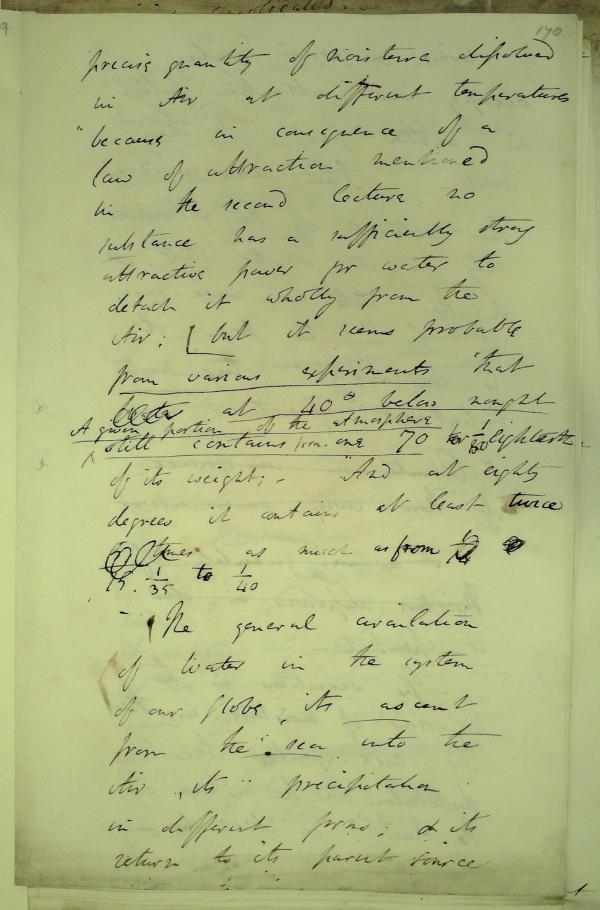 190
precise quantity of moisture dissolved
in Air at different temperatures
"because in consequence of a
law of attraction mentioned
in the second lecture no
substance has a sufficiently strong
attractive power for water to
detach it wholly from the
Air; [ but it seems probable
from various experiments "that
at 40° below nought
A given portion of the atmosphere
still contains from one 70 to 1/80
of its weight; - "And at eighty
degrees it contains at least twice
times as much as from
1/35 to 1/40
- The general circulation
of Water in the system
of our Globe, its ascent
from the sea into the
Air, its precipitation
in different forms; & its
return to its parent source